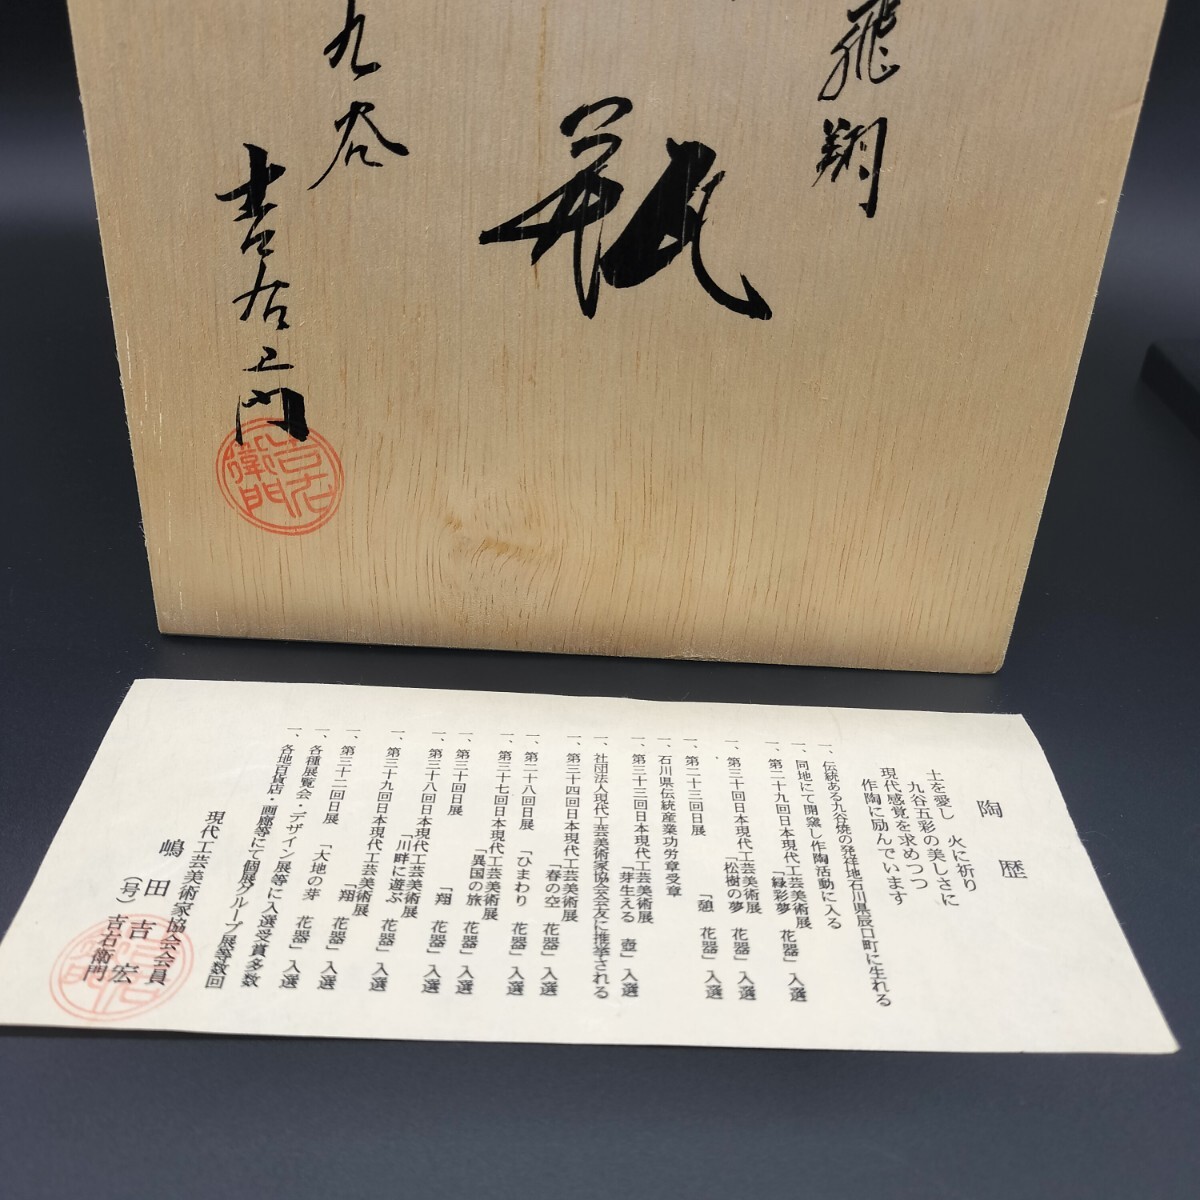 飛翔
瓶
九谷
吉右ヱ門
吉右衛門
陶歴
土を愛し 火に祈り
九谷五彩の美しさに
現代感覚を求めつつ
作陶に励んでいます
一、伝統ある九谷焼の発祥地石川県辰口町に生れる
一、同地にて開窯し作陶活動に入る
一、第二十九回日本現代工芸美術展 「緑彩夢 花器」入選
一、第三十回日本現代工芸美術展 「松樹の夢 花器」入選
一、第二十三回日展 「憩 花器」入選
一、石川県伝統産業功労章受章
一、第三十三回日本現代工芸美術展 「芽生える 壺」入選
一、社団法人現代工芸美術家協会会友に推挙される
一、第三十四回日本現代工芸美術展 「春の空 花器」入選
一、第二十八回日展 「ひまわり 花器」入選
一、第三十七回日本現代工芸美術展 「異国の旅 花器」入選
一、第三十回日展 「翔 花器」入選
一、第三十八回日本現代工芸美術展 「川畔に遊ぶ 花器」入選
一、第三十九回日本現代工芸美術展 「翔 花器」入選
一、第三十二回日展 「大地の芽 花器」入選
一、各種展覧会・デザイン展等に入選受賞多数
一、各地百貨店・画廊等にて個展グループ展等数回
現代工芸美術家協会会員
嶋田吉宏
(号)吉右衛門